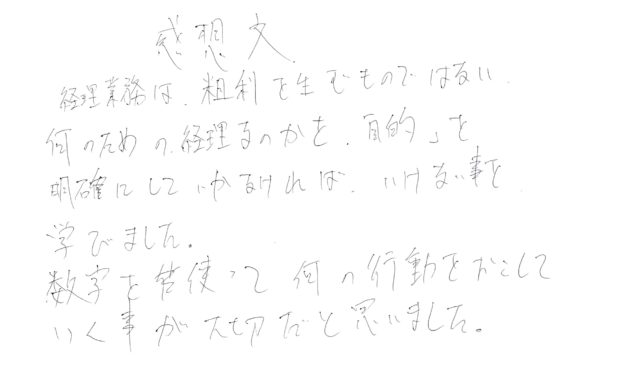 感想文
経理業務は、粗利を生むものではない。
何のための、経理なのかを、「目的」を
明確にしていかなければ、いけない事を
学びました。
数字を使って何の行動をおこして
いく事が大切だと思いました。